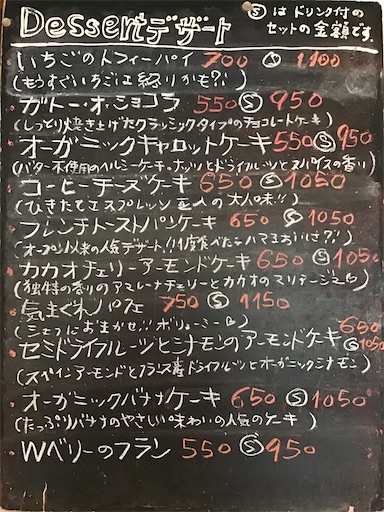 Dessertデザート
Ⓢ は ドリンク付の
セットの金額です。
いちごのトフィーパイ 700 Ⓢ 1100
(もうすぐいちごは終りかも?!)
ガトー・オ・ショコラ 550 Ⓢ 950
(しっとり焼き上げたクラッシックタイプのチョコレートケーキ)
オーガニックキャロットケーキ 550 Ⓢ 950
(バター不使用のヘルシーケーキ。ナッツとドライフルーツとスパイスの香り)
コーヒーチーズケーキ 650 Ⓢ 1050
(ひきたてエスプレッソ豆入の大人の味!!)
フレンチトーストパンケーキ 650 Ⓢ 1050
(オープン以来の人気デザート!!1度食べたらハマるちがさ?!)
カカオチェリーアーモンドケーキ 650 Ⓢ 1050
(独特の香りのアマレーナチェリーとカカオのマリアージュ♡)
気まぐれパフェ 750 Ⓢ 1150
(シェフにおまかせ!!ボリューミー♡)
セミドライフルーツとシナモンのアーモンドケーキ 650 Ⓢ 1050
(スペインアーモンドとフランス産ドライフルーツとオーガニックシナモン)
オーガニックバナナケーキ 650 Ⓢ 1050
(たっぷりバナナのやさしい味わいの人気のケーキ)
Wベリーのフラン 550 Ⓢ 950